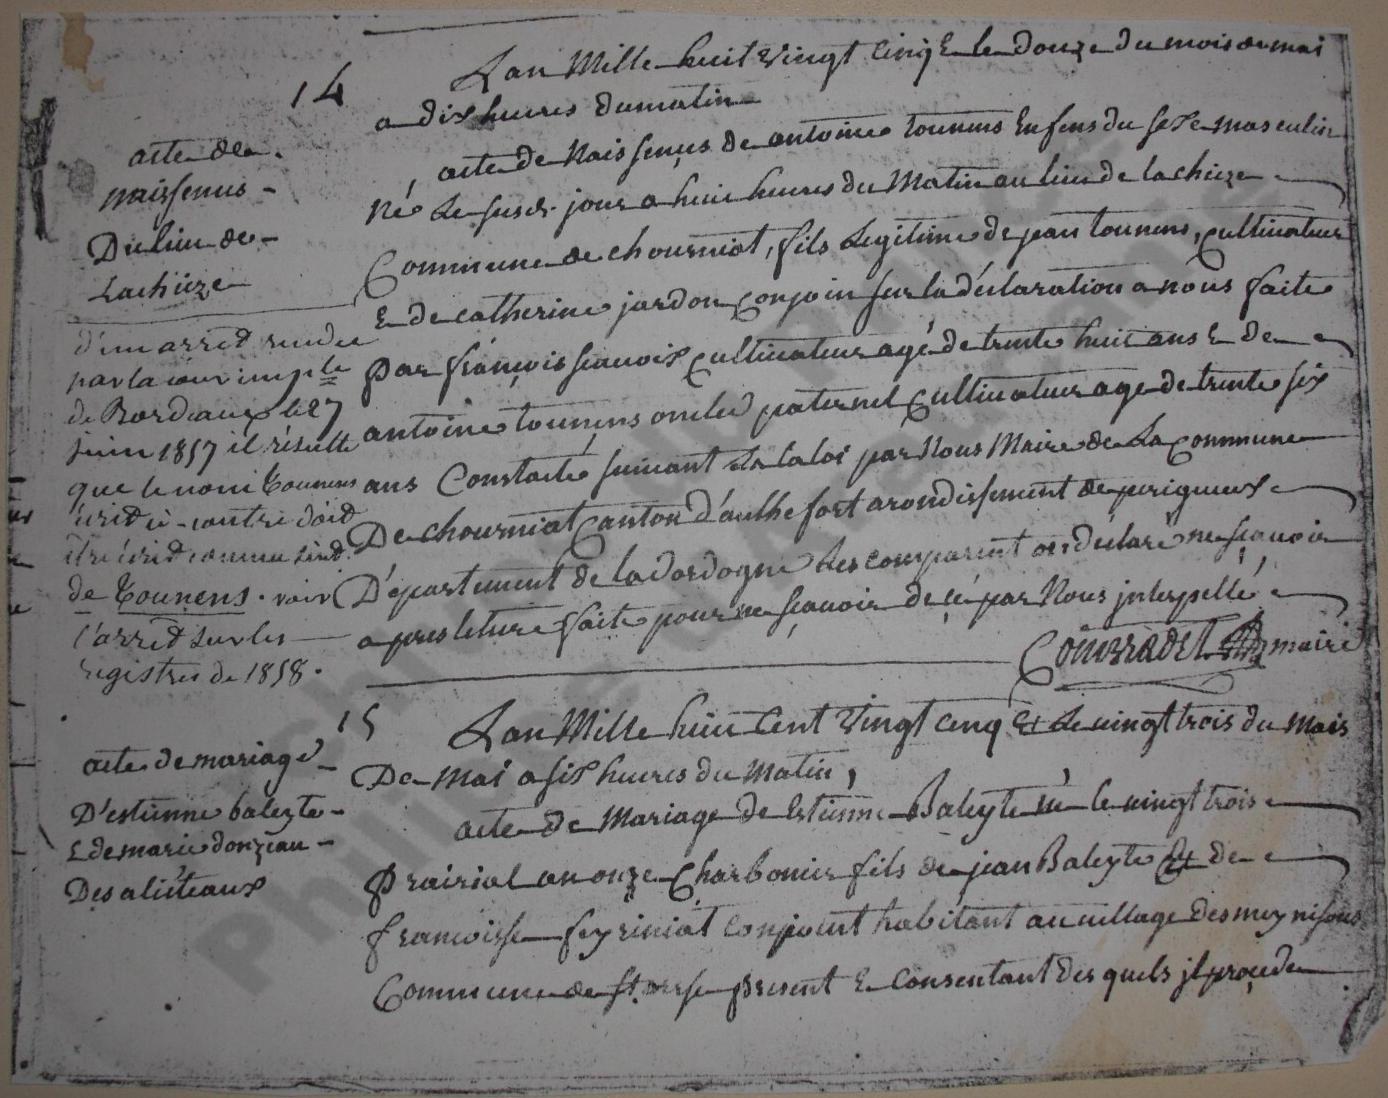 14
acte de
naissenus
Du lieu de
Lachieze
d'un arrêt rendu
par la cour imp.le
de Bordeaux le 27
juin 1857 il résulte
que le nom Tounens
écrit ci-contre doit
être écrit comme suit
de Tounens. voir
l'arrêt sur les
registres de 1858.
Lan Mille huit vingt cinq E le douze du mois de mai
a dix heures du matin
acte de Naissenus de antoine tounens Enfens du sexe masculin
Né Le susdt jour a huit heures du Matin au lieu de lachieze
Commune de chourniat, fils Legitime de jean tounens, cultivateur
E de catherine jardon conjoin sur la déclaration a nous faite
par françois sauoix cultivateur agé de trente huit ans E de
antoine tounens oncle paternel Cultivateur age de trente six
ans Constaté suivant La la loi par Nous Maire de La Commune
De chourniat Canton d'authefort arondissement de perigueux
Département de la dordogne Les comparent on déclaré ne sçauoir
apres leture faite pour ne sçauoir de cé par Nous interpellé
maire
15
acte de mariage
D'estienne baleyte
E de marie donzeau
Des aliéteaux
Lan Mille huit Cent Vingt cinq Et Le vingt trois du Mois
De Mai a six heures du Matin,
acte de Mariage de Estienne Baleyte né le vingt trois
prairial an onze Charbonier fils de jean Baleyte Et de
francoisse feyriniat conjoint habitant au village des meynisous
Commune de st orse present E consentant des quels il procede
Archives du Prince
Philippe d'Araucanie